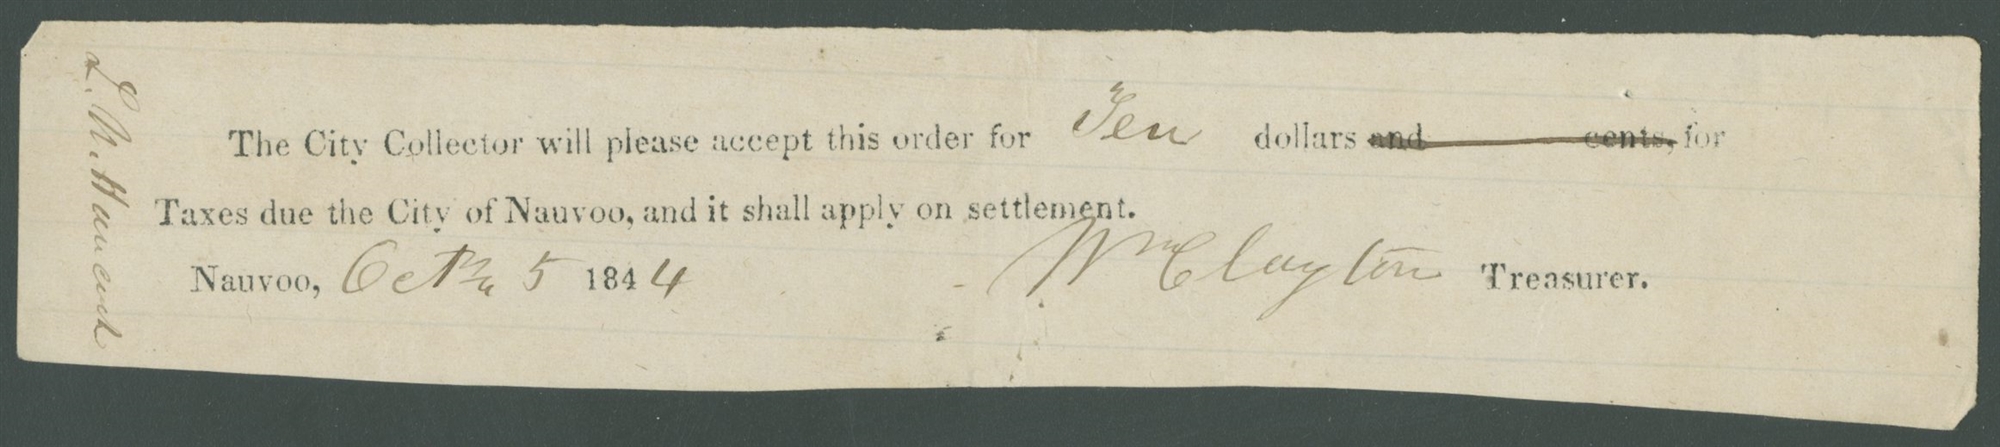 The City Collector will please accept this order for Ten dollars and cents, for
Taxes due the City of Nauvoo, and it shall apply on settlement.
Nauvoo, Oct 5 1844 Wm Clayton Treasurer.
L. N. Hancock